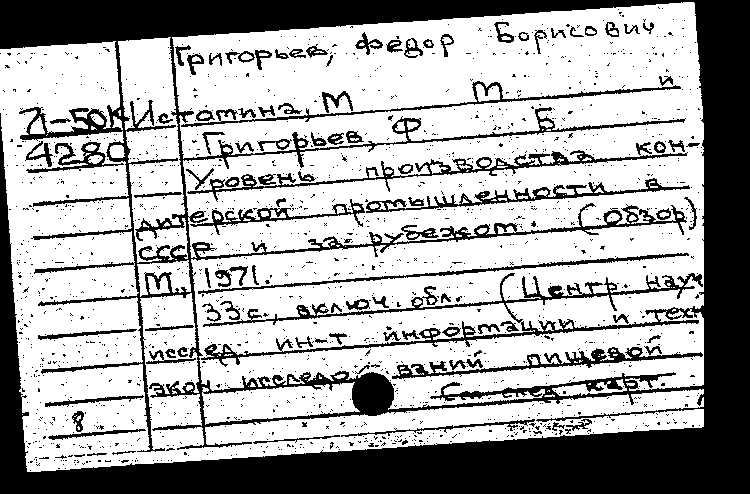 Григорьев, Федор Борисович.
71-50К Истомина, М М и
4280 Григорьев, Ф Б
Уровень производства кон-
дитерской промышленности в
СССР и за рубежом. (Обзор)
М., 1971.
33 с., включ. обл. (Центр. науч
исслед. ин-т информации и техн
экон. исследо ваний пищевой
См. след. карт.
8